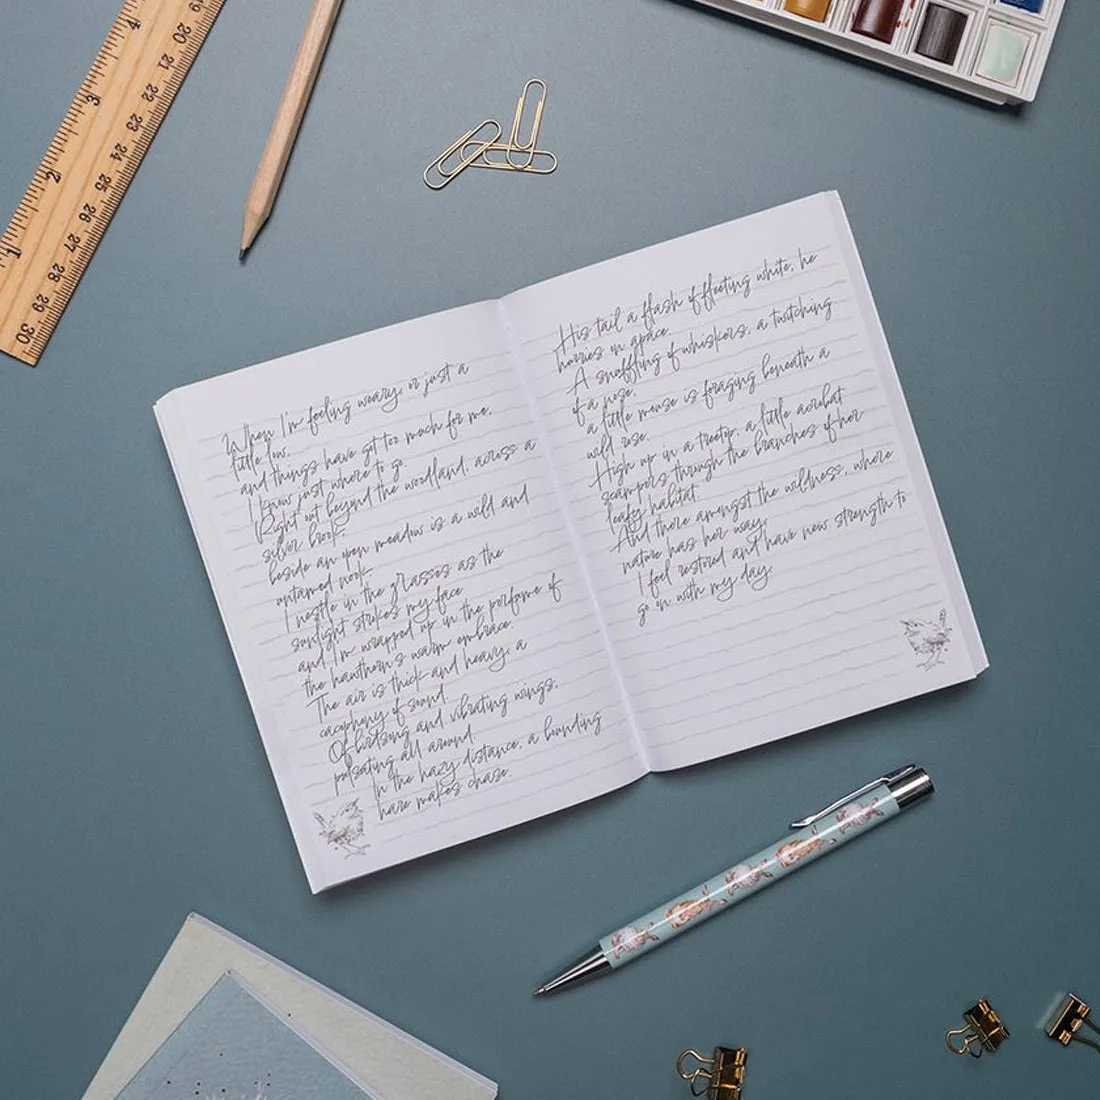 4
3
2
1
19
20
21
22
23
24
25
26
27
28
29
30
When I'm feeling weary or just a
little low,
and things have got too much for me,
I know just where to go.
Right out beyond the woodland, across a
silver brook,
beside an open meadow is a wild and
untamed nook.
I nestle in the grasses as the
sunlight strokes my face
and I'm wrapped up in the perfume of
the hawthorn's warm embrace.
The air is thick and heavy, a
cacophony of sound,
Of birdsong and vibrating wings,
pulsating all around.
In the hazy distance, a bounding
hare makes chase.
His tail a flash of fleeting white, he
hurries on apace.
A snuffling of whiskers, a twitching
of a nose,
a little mouse is foraging beneath a
wild rose.
High up in a treetop, a little acrobat
scampers through the branches of her
leafy habitat.
And there amongst the wildness, where
nature has her way,
I feel restored and have new strength to
go on with my day.